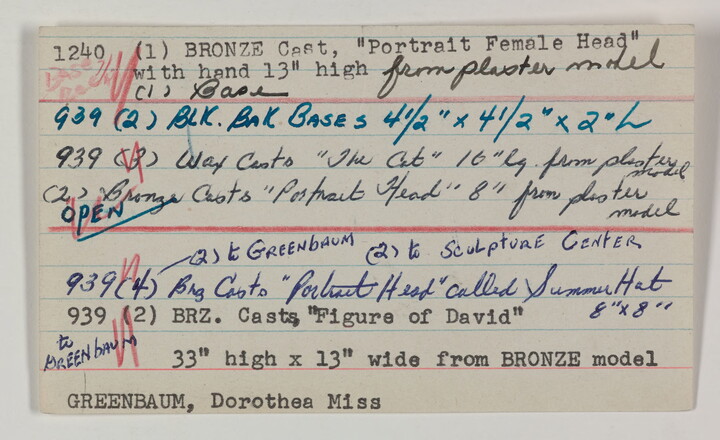 1240 (1) BRONZE Cast, "Portrait Female Head"
with hand 13" high from plaster model
(1) Base
939 (2) BLK. BAK BASES 4 1/2" x 4 1/2" x 2" L
939 (3) Wax Casts "The Cat" 16" lg. from plaster model
(2) Bronze Casts "Portrait Head" 8" from plaster model
OPEN
(2) to GREENBAUM (2) to SCULPTURE CENTER
939 (4) Brz Casts "Portrait Head" called Summer Hat
8" x 8"
939 (2) BRZ. Casts, "Figure of David"
to GREENBAUM
33" high x 13" wide from BRONZE model
GREENBAUM, Dorothea Miss